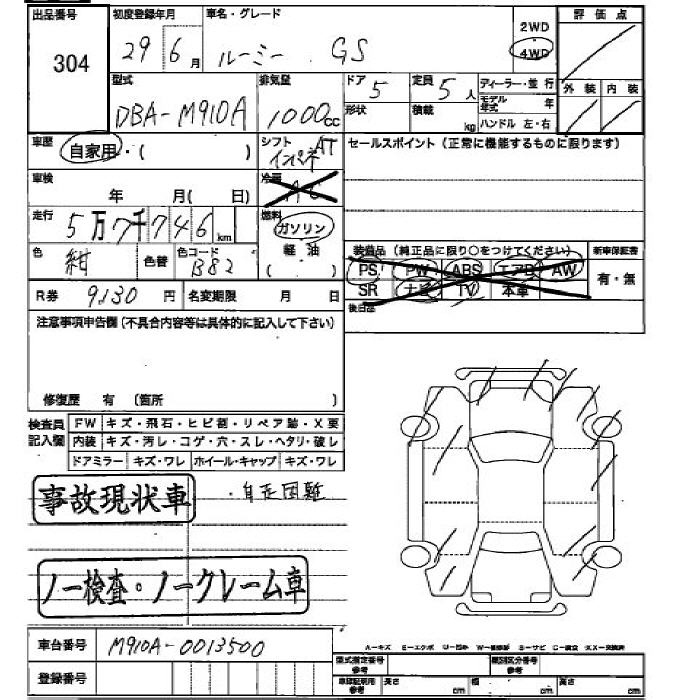 出品番号 初度登録年月 車名・グレード 評価点
304 29 6月 ルーミー GS 2WD 4WD
型式 排気量 ドア 5 定員 5人 ディーラー・並行 外装 内装
DBA-M910A 1000cc 形状 積載 kg モデル年式 年
ハンドル 左・右
車歴 自家用・( ) シフト インパネAT セールスポイント(正常に機能するものに限ります)
車検 年 月( 日) 冷房 AC
走行 5万7千746km 燃料 ガソリン
軽油
( )
色 紺 色替 色コード B82
装備品(純正品に限り○をつけてください) 新車保証書
PS PW ABS エアB AW 有・無
SR ナビ TV 本革
後日品
R券 9130円 名変期限 月 日
注意事項申告欄(不具合内容等は具体的に記入して下さい)
修復歴 有 (箇所 )
検査員記入欄 FW キズ・飛石・ヒビ割・リペア跡・X要
内装 キズ・汚レ・コゲ・穴・スレ・ヘタリ・破レ
ドアミラー キズ・ワレ ホイール・キャップ キズ・ワレ
事故現状車 ・自走困難
ノー検査・ノークレーム車
A-キズ E-エクボ U-凹み S-サビ
車台番号 M910A-0013500
登録番号
型式指定番号 参考 類別区分番号 参考
長さ cm 幅 cm 高さ cm